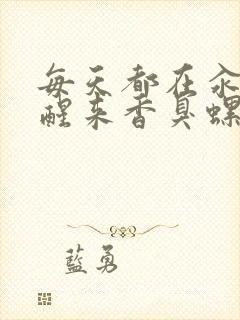 每天都在汆
醒来香臭螺
藍勇